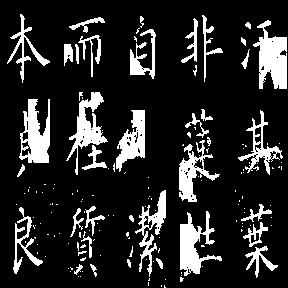 汙其葉
非蓮性
自潔
而桂質
本貞良